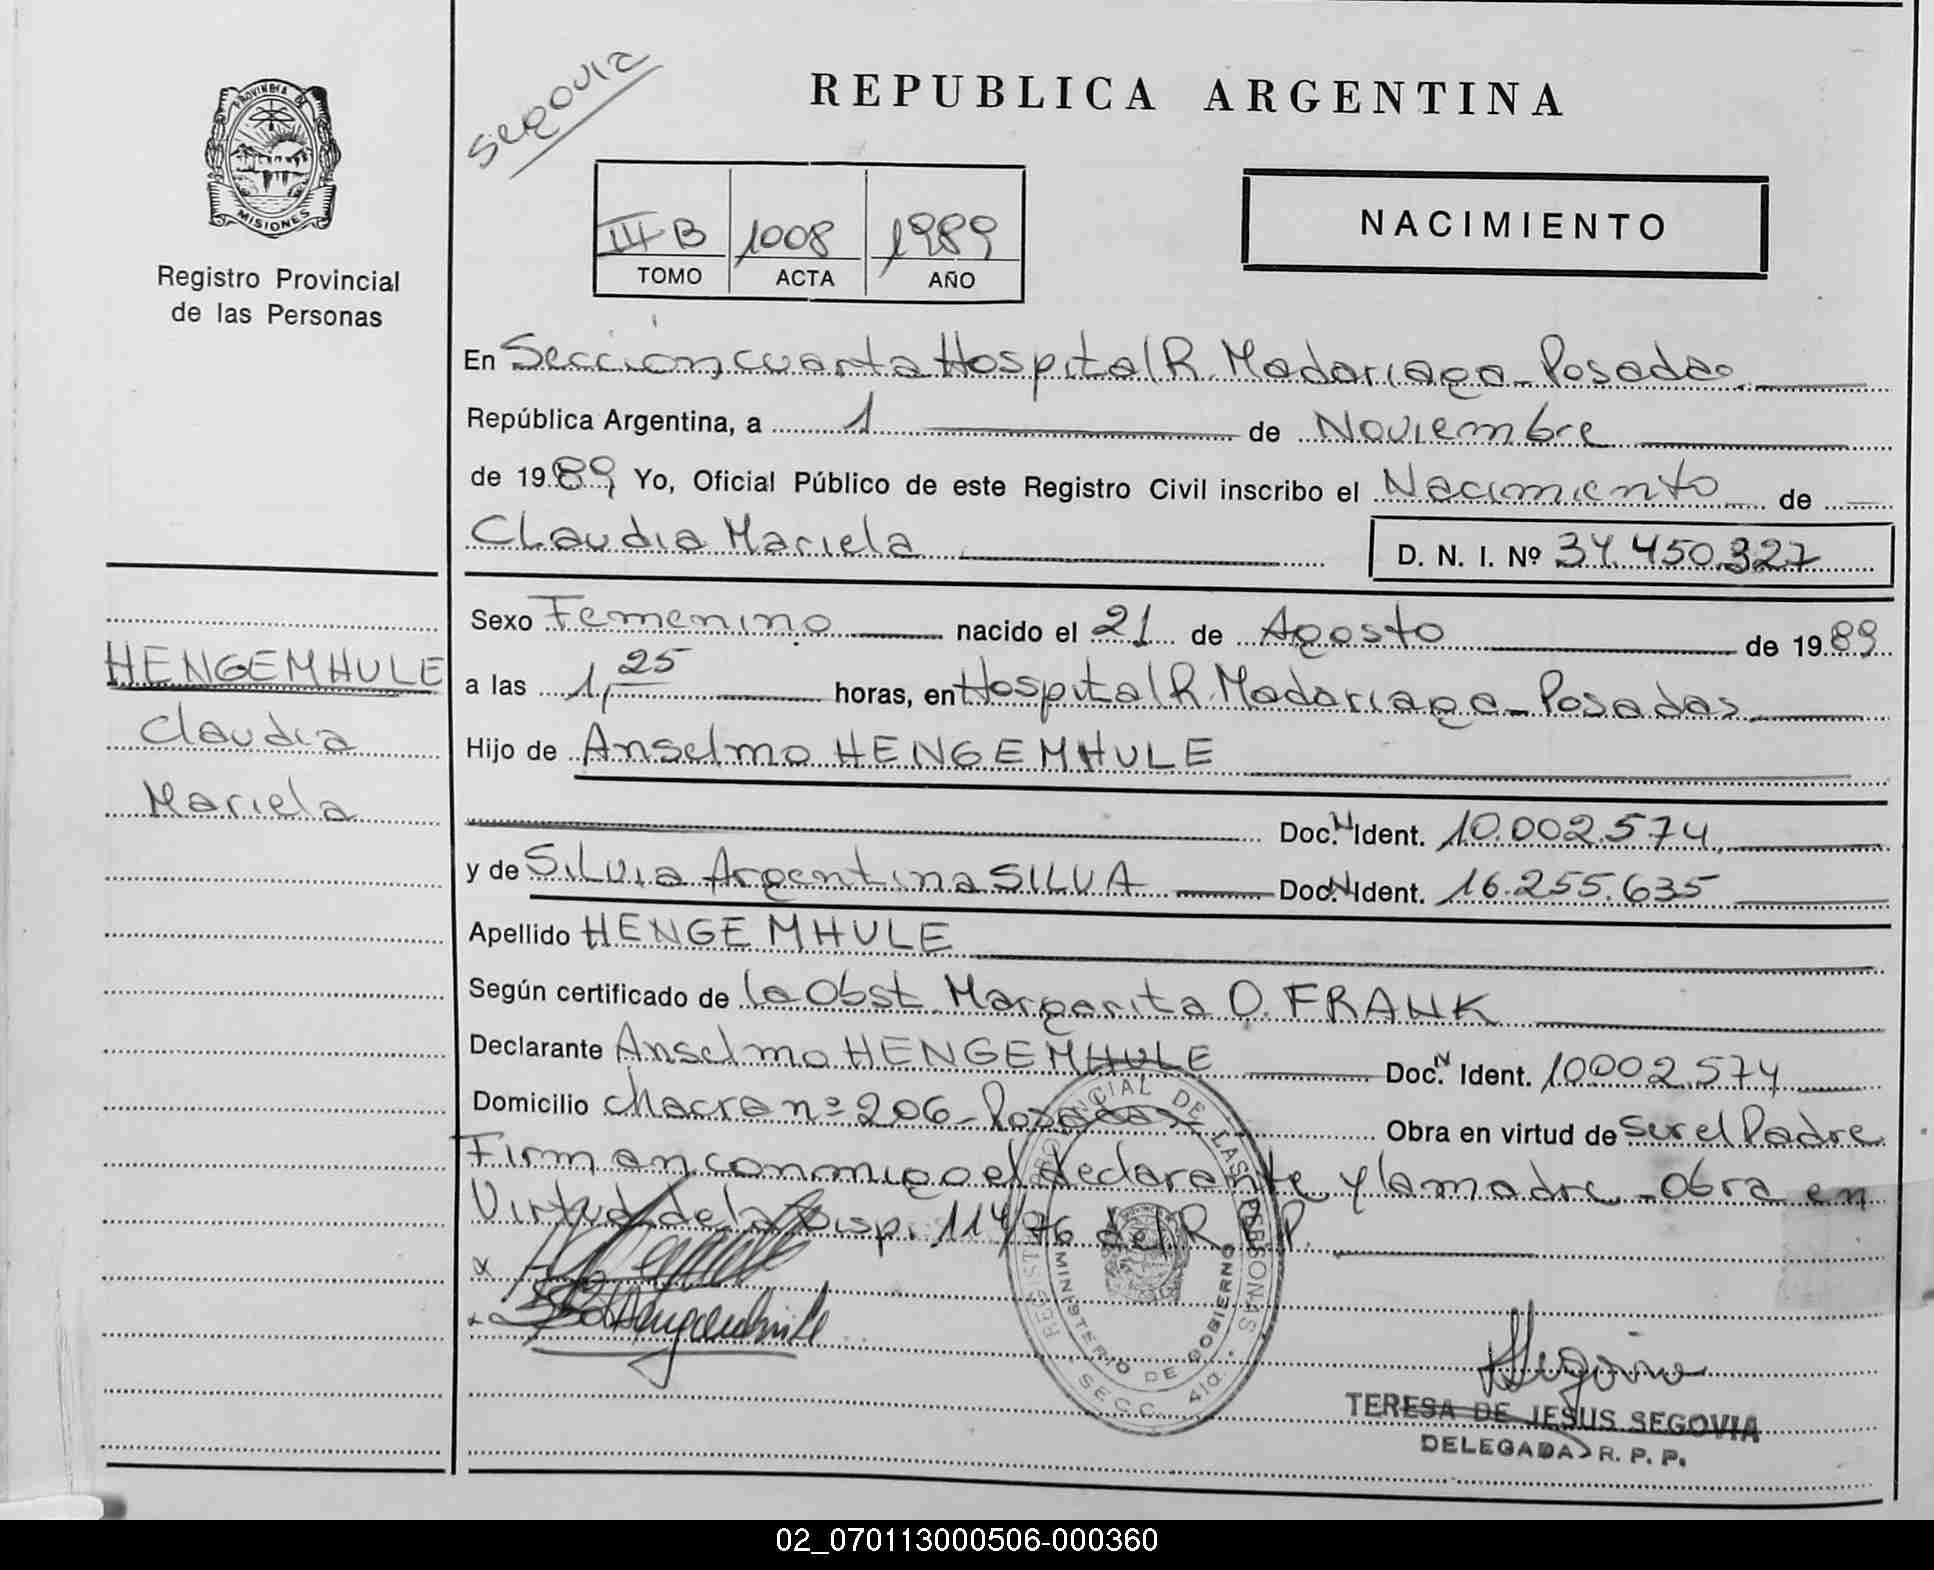 PROVINCIA DE
MISIONES
Registro Provincial
de las Personas
HENGEMHULE
Claudia
Mariela
Segovia
REPUBLICA ARGENTINA
III B 1008 1989
TOMO ACTA AÑO
NACIMIENTO
En Sección cuarta Hospital R. Madariaga - Posadas
República Argentina, a 1 de Noviembre
de 1989, Yo, Oficial Público de este Registro Civil inscribo el Nacimiento de
Claudia Mariela D. N. I. Nº 34.450.327
Sexo Femenino nacido el 21 de Agosto de 1989
a las 1,25 horas, en Hospital R. Madariaga - Posadas
Hijo de Anselmo HENGEMHULE
Doc. N Ident. 10.002.574
y de Silvia Argentina SILVA Doc. N Ident. 16.255.635
Apellido HENGEMHULE
Según certificado de la Obst. Margarita O. FRANK
Declarante Anselmo HENGEMHULE Doc. N Ident. 10002.574
Domicilio chacra nº 206 - Posadas Obra en virtud de ser el Padre
Firman conmigo el declarante y la madre - Obra en
Virtud de la Disp. 114/76 del R. P. P.
x
x
REGISTRO PROVINCIAL DE LAS PERSONAS
MINISTERIO DE GOBIERNO
SECC. 4ta.
Segovia
TERESA DE JESUS SEGOVIA
DELEGADA R. P. P.
02_070113000506-000360